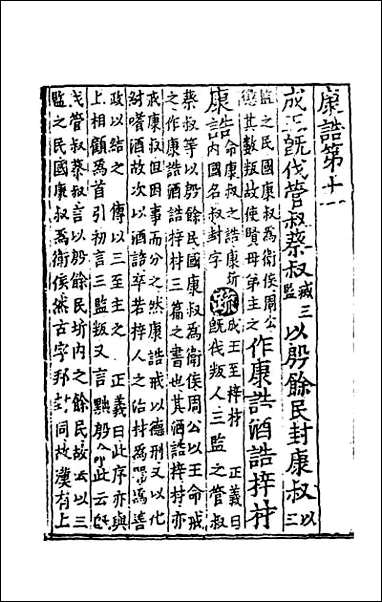 康誥第十一
成王既伐管叔蔡叔滅三監以殷餘民封康叔以三
監之民國康叔為衛侯周公懲其數叛故使賢母弟主之作康誥酒誥梓材
康誥命康叔之誥康圻內國名叔封字疏成王至梓材 正義曰既伐叛人三監之管叔
蔡叔等以殷餘民國康叔為衛侯周公以王命戒
之作康誥酒誥梓材三篇之書也其酒誥梓材亦
戒康叔但因事而分之然康誥戒以德刑又以化
紂嗜酒故次以酒誥卒若梓人之治材為器為善
政以結之 傳以三至主之 正義曰此序亦與
上相顧為首引初言三監叛又言黜殷命此云既
伐管叔蔡叔言以殷餘民圻內之餘民故云以三
監之民國康叔為衛侯然古字邦封同故漢有上